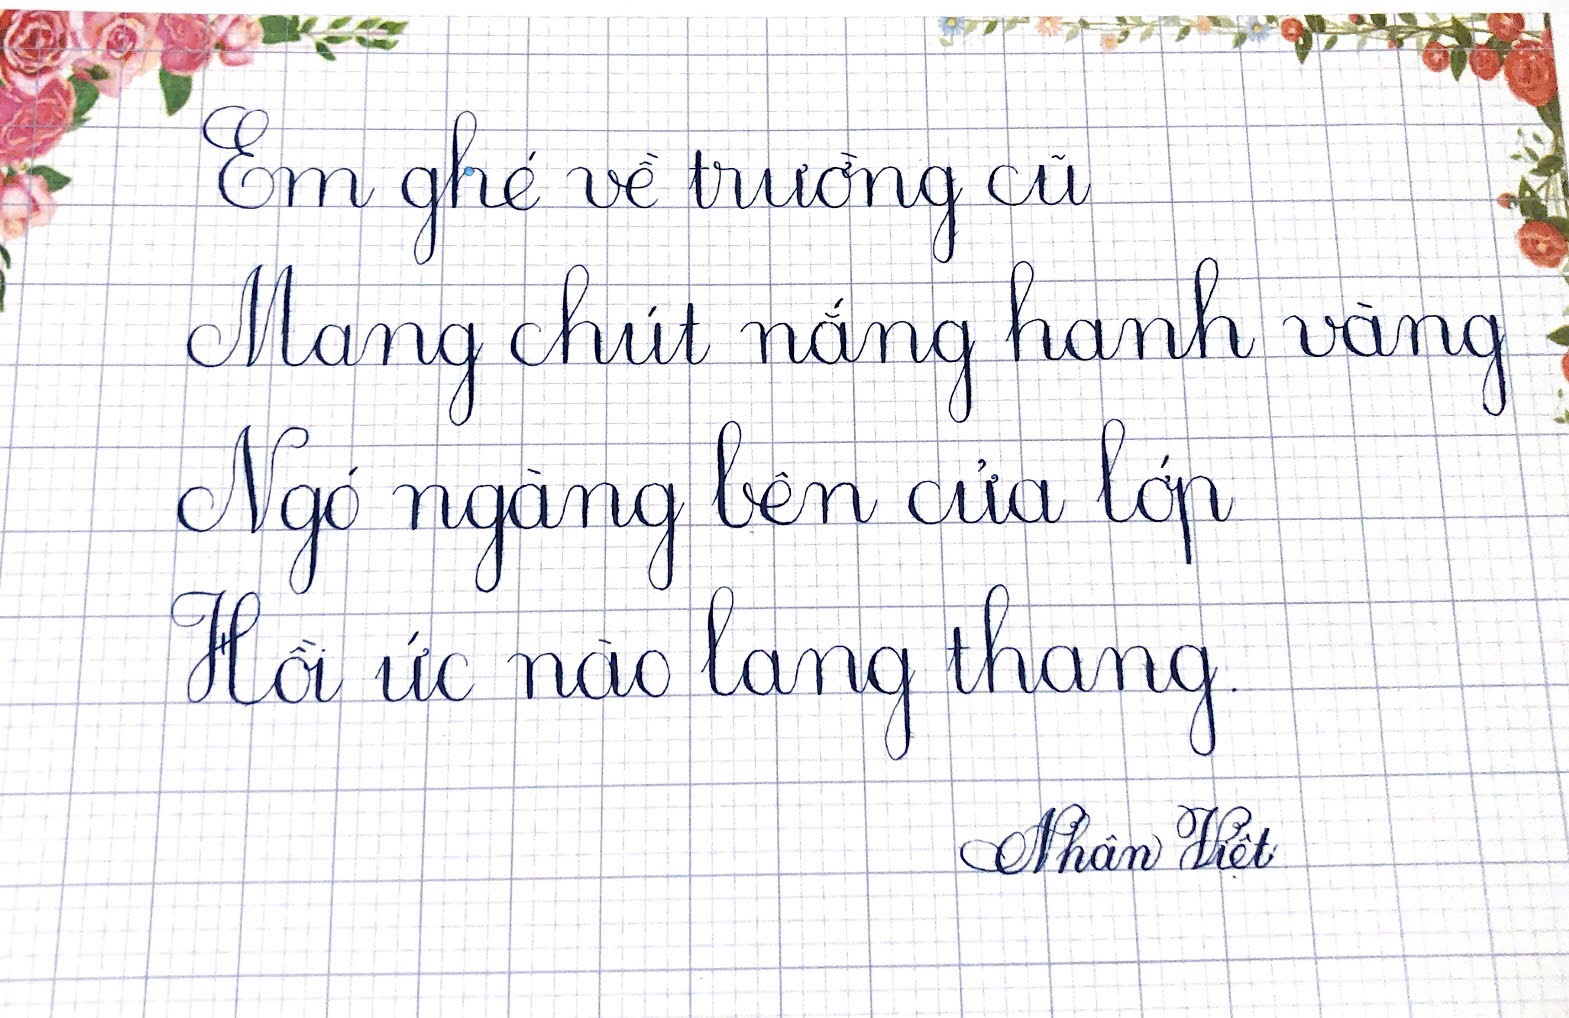 Em ghé về trường cũ
Mang chút nắng hanh vàng
Ngó ngàng bên cửa lớp
Hồi ức nào lang thang.
Nhân Việt